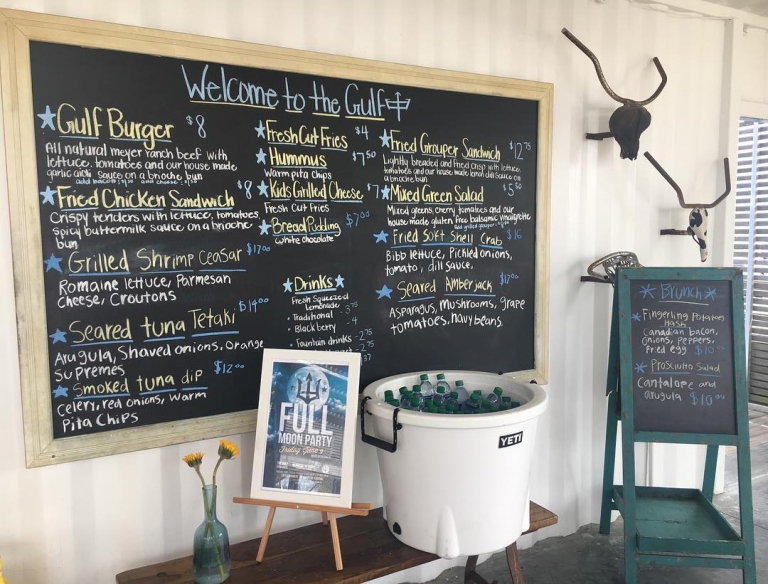 Welcome to the Gulf
Gulf Burger $8
All natural meyer ranch beef with
lettuce, tomatoes and our house made
garlic aioli sauce on a brioche bun
Fried Chicken Sandwich $8
Crispy tenders with lettuce, tomatoes,
spicy buttermilk sauce on a brioche
bun
Grilled Shrimp Ceasar
Romaine lettuce, Parmesan
cheese, Croutons
Seared tuna Tetaki $14.00
Arugula, Shaved onions, orange
Supremes
Smoked tuna dip $12.00
celery, red onions, warm
Pita Chips
Fresh Cut Fries $4
Hummus $7.50
Warm pita chips
Kids Grilled Cheese $7
Fresh Cut Fries
Bread Pudding $7.00
white chocolate
Drinks
Fresh Squeezed
Lemonade
• Traditional
• Blackberry
• Fountain drinks
Fried Grouper Sandwich $12.75
Lightly breaded and fried crisp with lettuce,
tomatoes and our house made lemon dill sauce on
a brioche bun
Mixed Green Salad $5.50
Mixed greens, cherry tomatoes and our
house made gluten free balsamic vinaigrette
Fried Soft Shell Crab $16
Bibb lettuce, Pickled onions,
tomato, dill sauce.
Seared Amberjack
Asparagus, Mushrooms, grape
tomatoes, navy beans.
FULL
MOON PARTY
YETI
Brunch
Fingerling Potatoes
Hash
Canadian bacon,
onions, Peppers,
Fried egg
Prosciutto Salad
Cantalope and
arugula $10.00